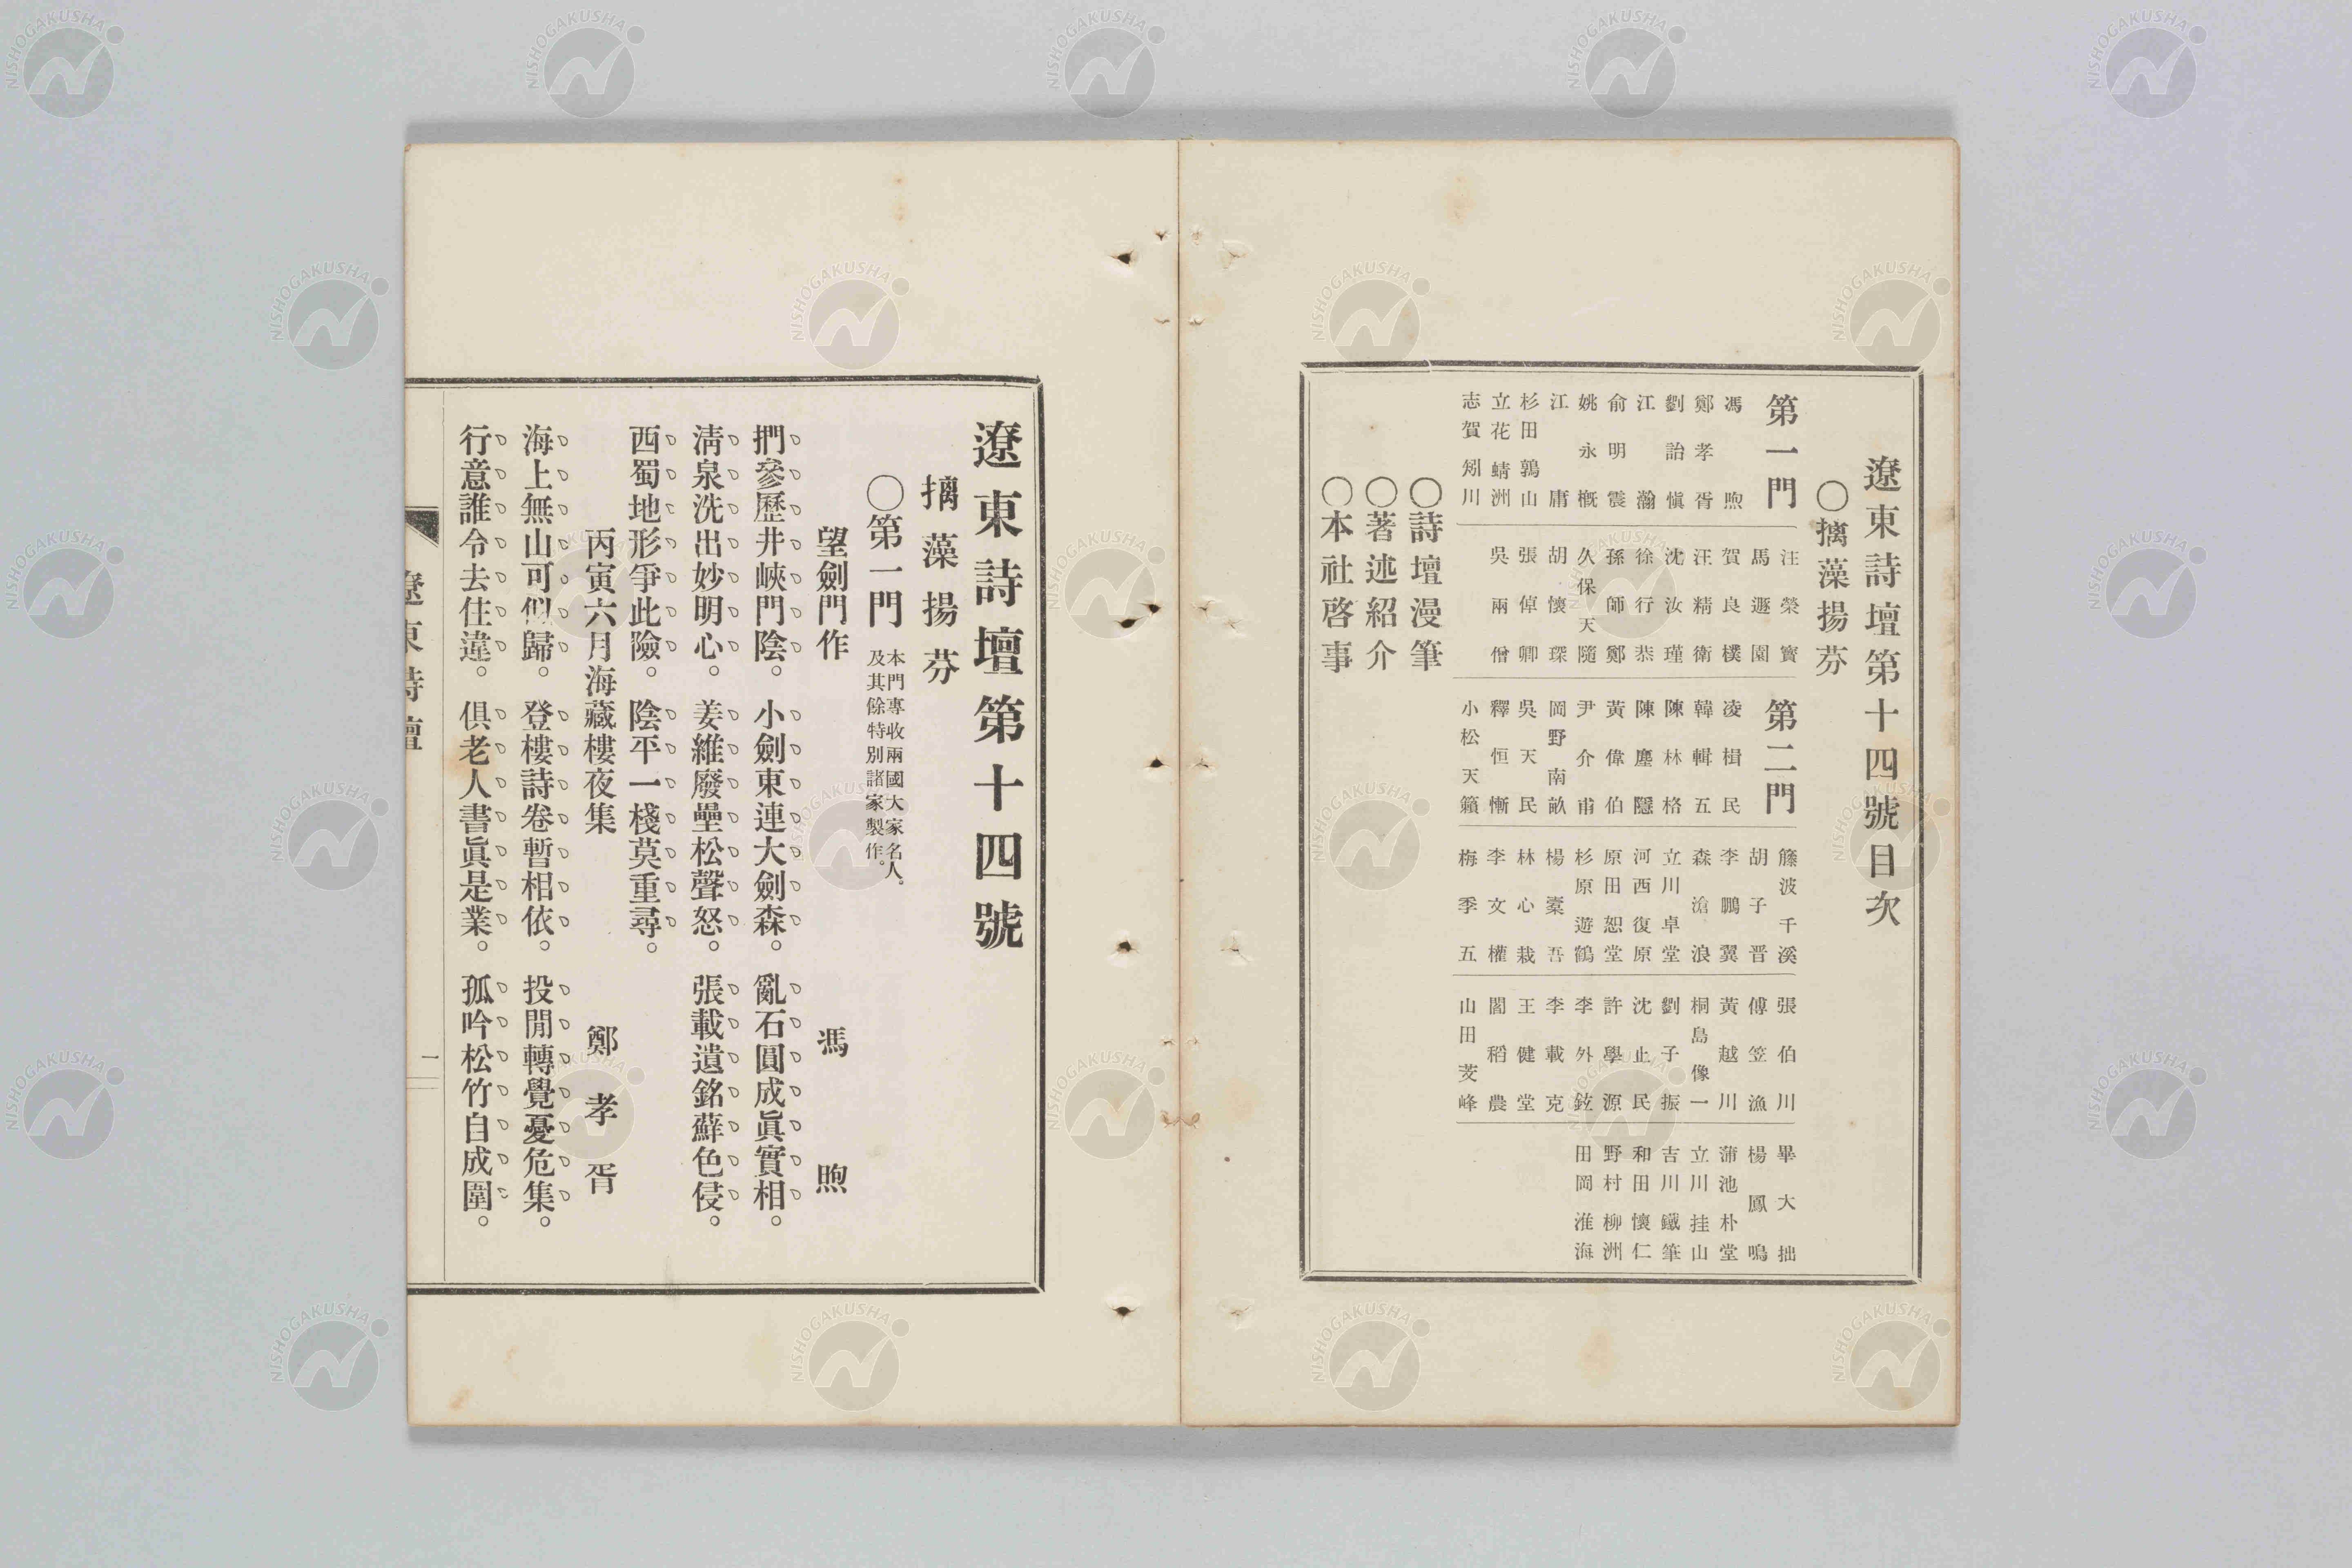 遼東詩壇第十四號目次
〇摛藻揚芬
第一門
馮煦
鄭孝胥
劉詒愼
江瀚
俞明震
姚永概
江庸
杉田鶉山
立花蜻洲
志賀矧川
汪榮寶
馬遯園
賀良樸
汪精衛
沈汝瑾
徐行恭
孫師鄭
久保天隨
胡懷琛
張倬卿
吳兩僧
第二門
凌楫民
韓輯五
陳林格
陳塵隱
黃偉伯
尹介甫
岡野南畝
吳天民
釋恒慚
小松天籟
籐波千溪
胡子晋
李鵬翼
森滄浪
立川卓堂
河西復原
原田恕堂
杉原遊鶴
楊橐吾
林心栽
李文權
梅季五
張伯川
傅笠漁
黃越川
桐島像一
劉子振
沈止民
許學源
李外鉉
李載克
王健堂
閻稻農
山田芰峰
畢大拙
楊鳳鳴
蒲池朴堂
立川挂山
吉川鐵筆
和田懷仁
野村柳洲
田岡淮海
〇詩壇漫筆
〇著述紹介
〇本社啓事
遼東詩壇第十四號
摛藻揚芬
〇第一門 本門專收兩國大家名人。
及其餘特別諸家製作。
望劍門作 馮煦
捫參歷井峽門陰。小劍東連大劍森。亂石圓成眞實相。
淸泉洗出妙明心。姜維廢壘松聲怒。張載遺銘蘚色侵。
西蜀地形爭此險。陰平一棧莫重尋。
丙寅六月海藏樓夜集 鄭孝胥
海上無山可似歸。登樓詩卷暫相依。投閒轉覺憂危集。
行意誰令去住違。俱老人書眞是業。孤吟松竹自成圍。
遼東詩壇
一
NISHOGAKUSHA